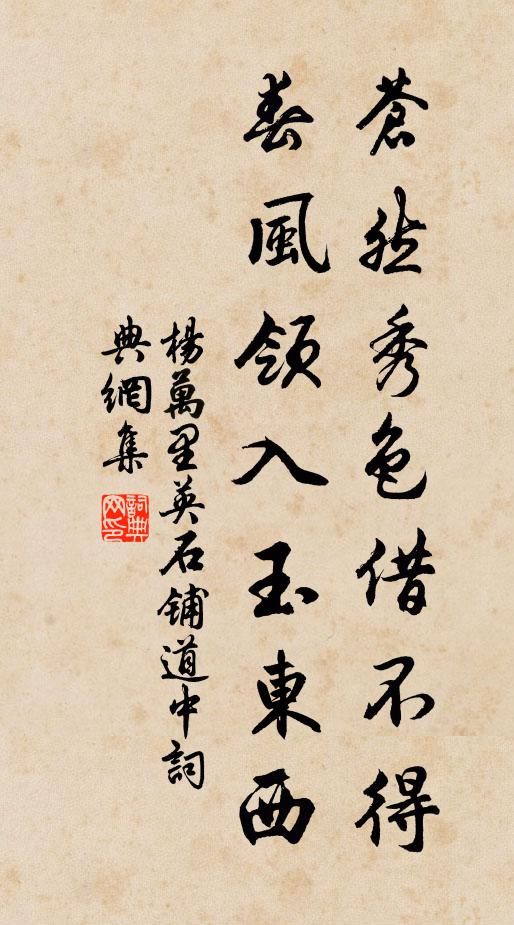 蒼然秀色借不得
春風領入玉東西
楊萬里英石鋪道中詞
典網集
詞典
网印